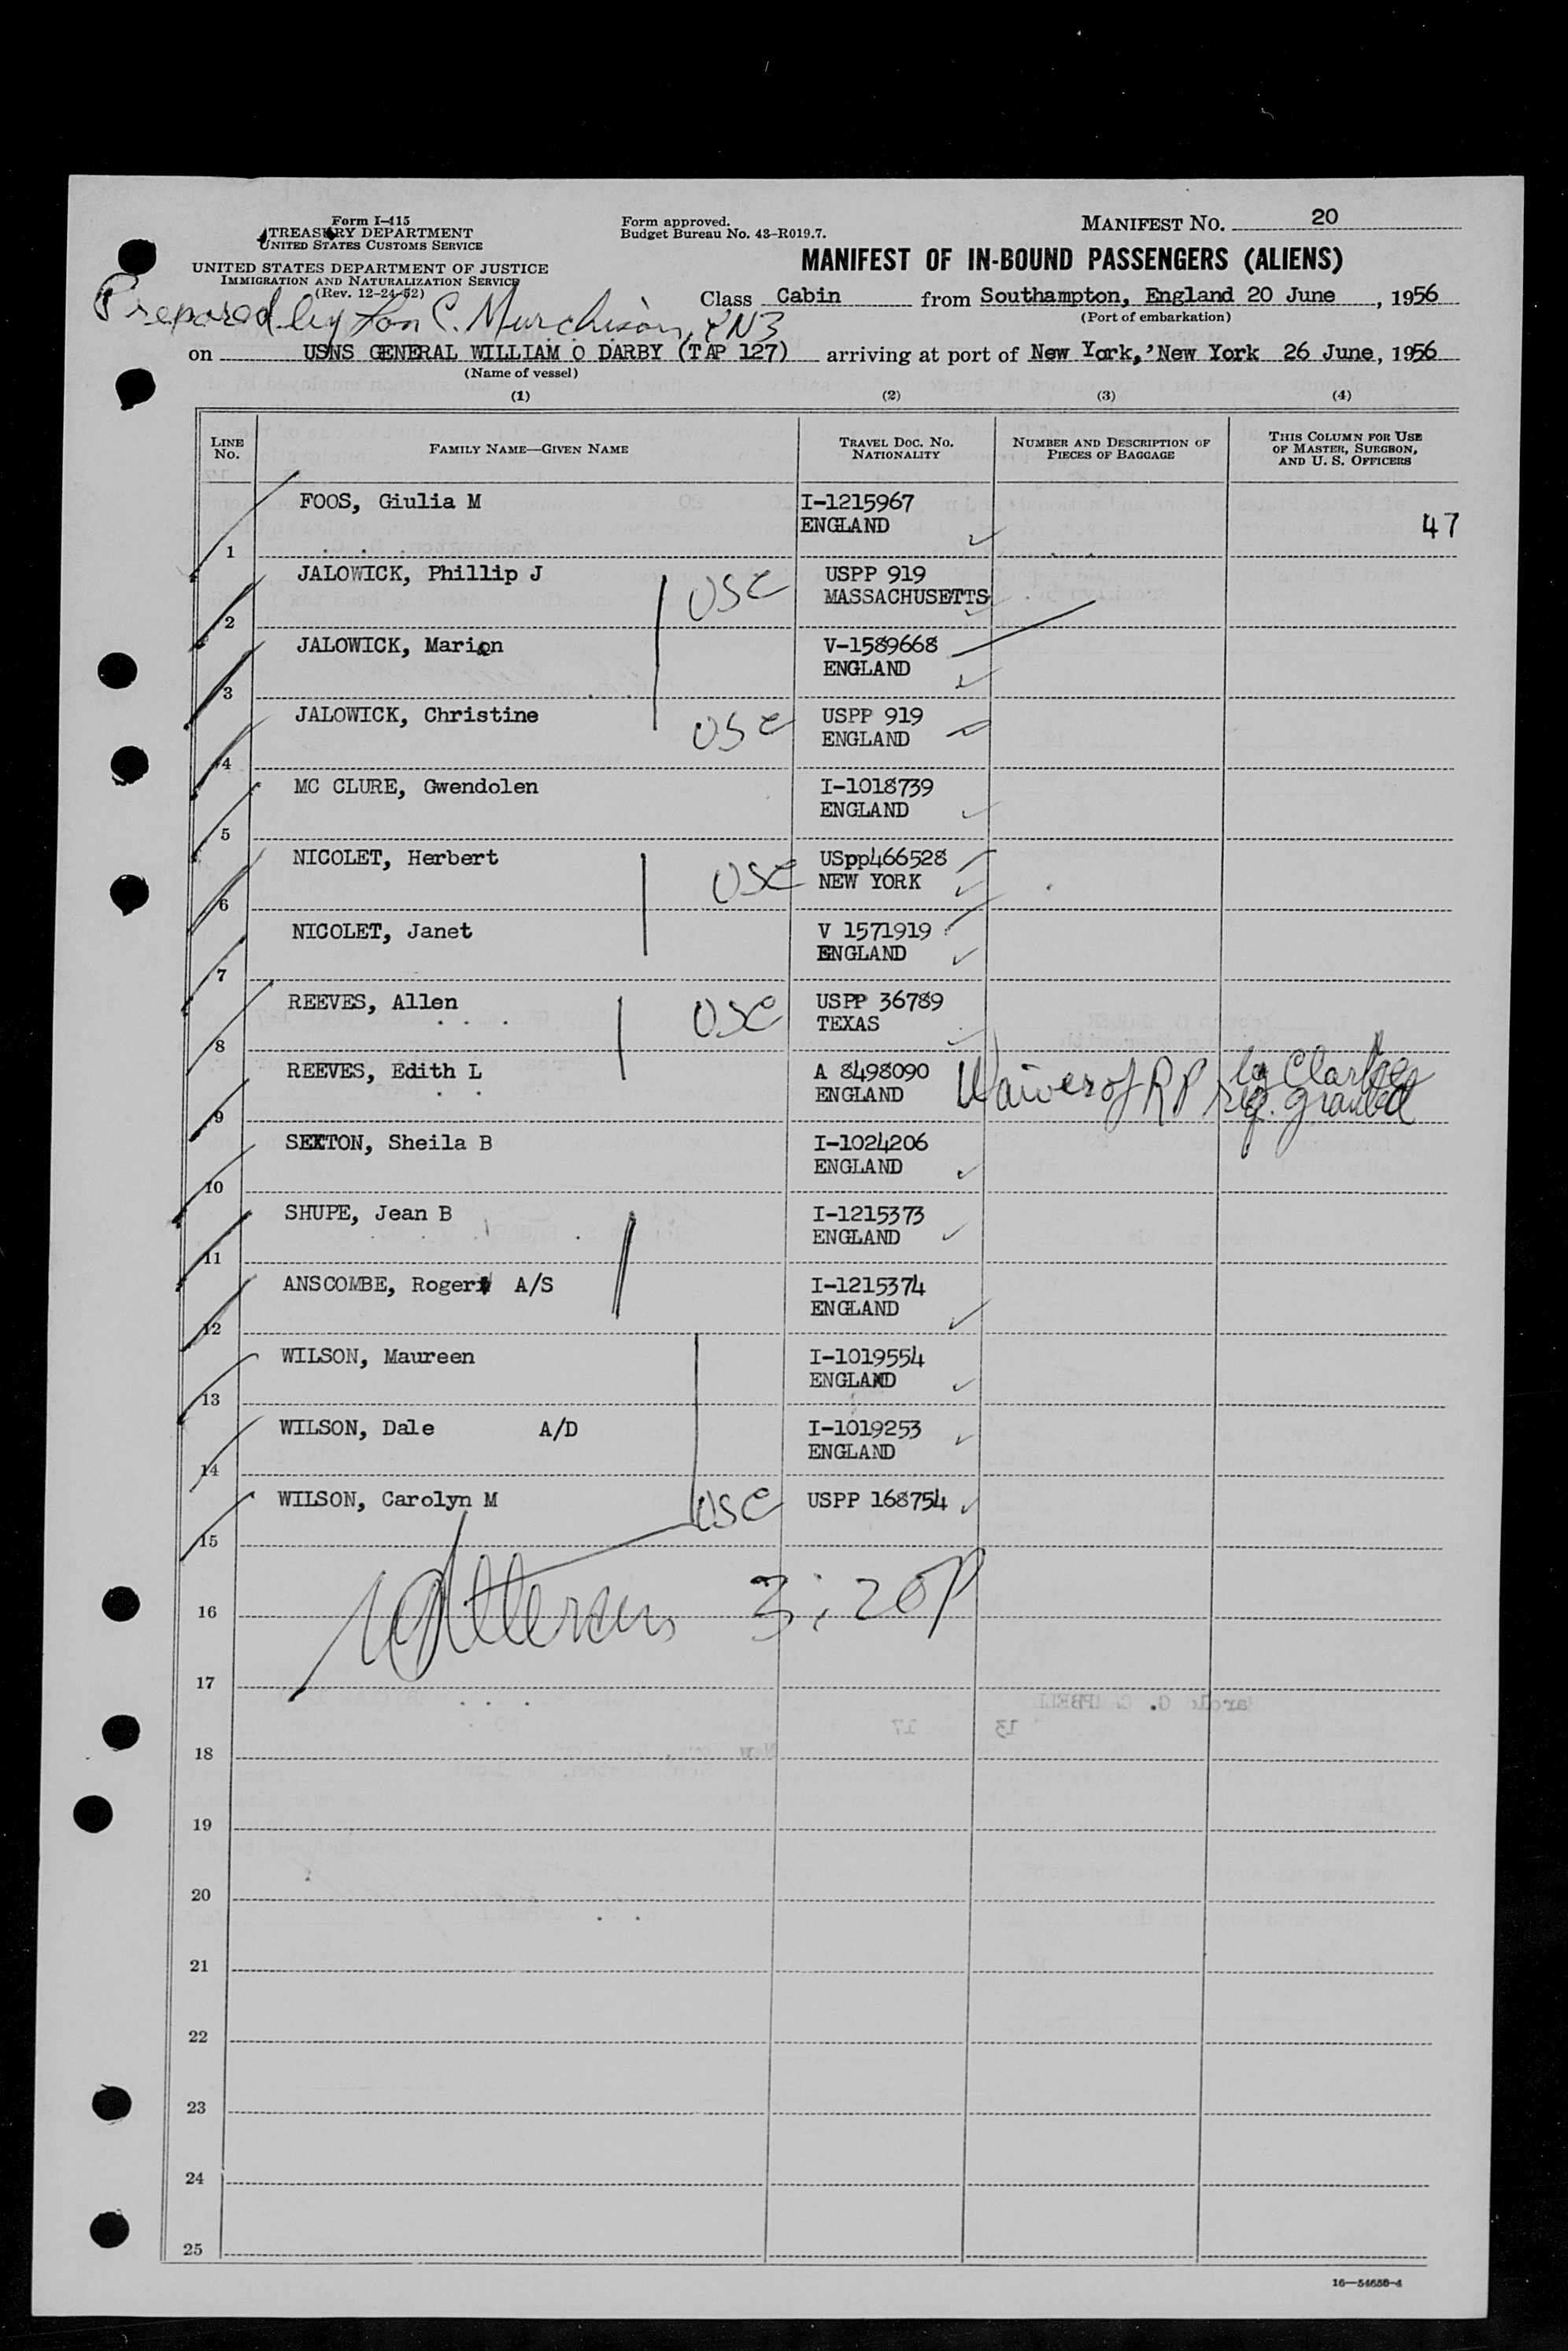 Form I-415
TREASURY DEPARTMENT
UNITED STATES CUSTOMS SERVICE
UNITED STATES DEPARTMENT OF JUSTICE
IMMIGRATION AND NATURALIZATION SERVICE
(Rev. 12-24-52)
Form approved.
Budget Bureau No. 43-R019.7.
MANIFEST NO. 20
MANIFEST OF IN-BOUND PASSENGERS (ALIENS)
Prepared by Ron C. Murchison, PN3
Class Cabin from Southampton, England 20 June, 1956
(Port of embarkation)
on USNS GENERAL WILLIAM O DARBY (TAP 127) arriving at port of New York, New York 26 June, 1956
(Name of vessel)
(1) (2) (3) (4)
LINE NO. FAMILY NAME—GIVEN NAME TRAVEL DOC. NO. NATIONALITY NUMBER AND DESCRIPTION OF PIECES OF BAGGAGE THIS COLUMN FOR USE OF MASTER, SURGEON, AND U. S. OFFICERS
FOOS, Giulia M I-1215967
1 ENGLAND 47
JALOWICK, Phillip J USC USPP 919
2 MASSACHUSETTS
JALOWICK, Marion V-1589668
3 ENGLAND
JALOWICK, Christine USC USPP 919
4 ENGLAND
MC CLURE, Gwendolen I-1018739
5 ENGLAND
NICOLET, Herbert USC USpp466528
6 NEW YORK
NICOLET, Janet V 1571919
7 ENGLAND
REEVES, Allen USC USPP 36789
8 TEXAS
REEVES, Edith L A 8498090 Waiver of RP by Clarke
9 ENGLAND req. granted
SEXTON, Sheila B I-1024206
10 ENGLAND
SHUPE, Jean B I-1215373
11 ENGLAND
ANSCOMBE, Roger A/S I-1215374
12 ENGLAND
WILSON, Maureen I-1019554
13 ENGLAND
WILSON, Dale A/D I-1019253
14 ENGLAND
WILSON, Carolyn M USC USPP 168754
15
3:20P
16
17
18
19
20
21
22
23
24
25
16—54650-4